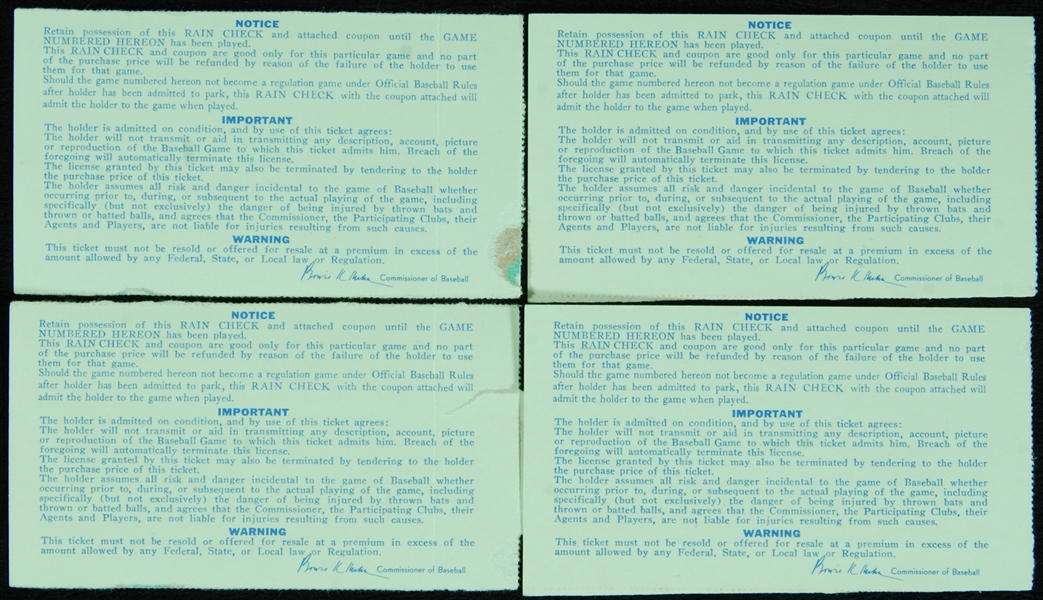 NOTICE
Retain possession of this RAIN CHECK and attached coupon until the GAME
NUMBERED HEREON has been played.
This RAIN CHECK and coupon are good only for this particular game and no part
of the purchase price will be refunded by reason of the failure of the holder to use
them for that game.
Should the game numbered hereon not become a regulation game under Official Baseball Rules
after holder has been admitted to park, this RAIN CHECK with the coupon attached will
admit the holder to the game when played.
IMPORTANT
The holder is admitted on condition, and by use of this ticket agrees:
The holder will not transmit or aid in transmitting any description, account, picture
or reproduction of the Baseball Game to which this ticket admits him. Breach of the
foregoing will automatically terminate this license.
The license granted by this ticket may also be terminated by tendering to the holder
the purchase price of this ticket.
The holder assumes all risk and danger incidental to the game of Baseball whether
occurring prior to, during, or subsequent to the actual playing of the game, including
specifically (but not exclusively) the danger of being injured by thrown bats and
thrown or batted balls, and agrees that the Commissioner, the Participating Clubs, their
Agents and Players, are not liable for injuries resulting from such causes.
WARNING
This ticket must not be resold or offered for resale at a premium in excess of the
amount allowed by any Federal, State, or Local law or Regulation.
Bowie K. Kuhn Commissioner of Baseball
NOTICE
Retain possession of this RAIN CHECK and attached coupon until the GAME
NUMBERED HEREON has been played.
This RAIN CHECK and coupon are good only for this particular game and no part
of the purchase price will be refunded by reason of the failure of the holder to use
them for that game.
Should the game numbered hereon not become a regulation game under Official Baseball Rules
after holder has been admitted to park, this RAIN CHECK with the coupon attached will
admit the holder to the game when played.
IMPORTANT
The holder is admitted on condition, and by use of this ticket agrees:
The holder will not transmit or aid in transmitting any description, account, picture
or reproduction of the Baseball Game to which this ticket admits him. Breach of the
foregoing will automatically terminate this license.
The license granted by this ticket may also be terminated by tendering to the holder
the purchase price of this ticket.
The holder assumes all risk and danger incidental to the game of Baseball whether
occurring prior to, during, or subsequent to the actual playing of the game, including
specifically (but not exclusively) the danger of being injured by thrown bats and
thrown or batted balls, and agrees that the Commissioner, the Participating Clubs, their
Agents and Players, are not liable for injuries resulting from such causes.
WARNING
This ticket must not be resold or offered for resale at a premium in excess of the
amount allowed by any Federal, State, or Local law or Regulation.
Bowie K. Kuhn Commissioner of Baseball
NOTICE
Retain possession of this RAIN CHECK and attached coupon until the GAME
NUMBERED HEREON has been played.
This RAIN CHECK and coupon are good only for this particular game and no part
of the purchase price will be refunded by reason of the failure of the holder to use
them for that game.
Should the game numbered hereon not become a regulation game under Official Baseball Rules
after holder has been admitted to park, this RAIN CHECK with the coupon attached will
admit the holder to the game when played.
IMPORTANT
The holder is admitted on condition, and by use of this ticket agrees:
The holder will not transmit or aid in transmitting any description, account, picture
or reproduction of the Baseball Game to which this ticket admits him. Breach of the
foregoing will automatically terminate this license.
The license granted by this ticket may also be terminated by tendering to the holder
the purchase price of this ticket.
The holder assumes all risk and danger incidental to the game of Baseball whether
occurring prior to, during, or subsequent to the actual playing of the game, including
specifically (but not exclusively) the danger of being injured by thrown bats and
thrown or batted balls, and agrees that the Commissioner, the Participating Clubs, their
Agents and Players, are not liable for injuries resulting from such causes.
WARNING
This ticket must not be resold or offered for resale at a premium in excess of the
amount allowed by any Federal, State, or Local law or Regulation.
Bowie K. Kuhn Commissioner of Baseball
NOTICE
Retain possession of this RAIN CHECK and attached coupon until the GAME
NUMBERED HEREON has been played.
This RAIN CHECK and coupon are good only for this particular game and no part
of the purchase price will be refunded by reason of the failure of the holder to use
them for that game.
Should the game numbered hereon not become a regulation game under Official Baseball Rules
after holder has been admitted to park, this RAIN CHECK with the coupon attached will
admit the holder to the game when played.
IMPORTANT
The holder is admitted on condition, and by use of this ticket agrees:
The holder will not transmit or aid in transmitting any description, account, picture
or reproduction of the Baseball Game to which this ticket admits him. Breach of the
foregoing will automatically terminate this license.
The license granted by this ticket may also be terminated by tendering to the holder
the purchase price of this ticket.
The holder assumes all risk and danger incidental to the game of Baseball whether
occurring prior to, during, or subsequent to the actual playing of the game, including
specifically (but not exclusively) the danger of being injured by thrown bats and
thrown or batted balls, and agrees that the Commissioner, the Participating Clubs, their
Agents and Players, are not liable for injuries resulting from such causes.
WARNING
This ticket must not be resold or offered for resale at a premium in excess of the
amount allowed by any Federal, State, or Local law or Regulation.
Bowie K. Kuhn Commissioner of Baseball